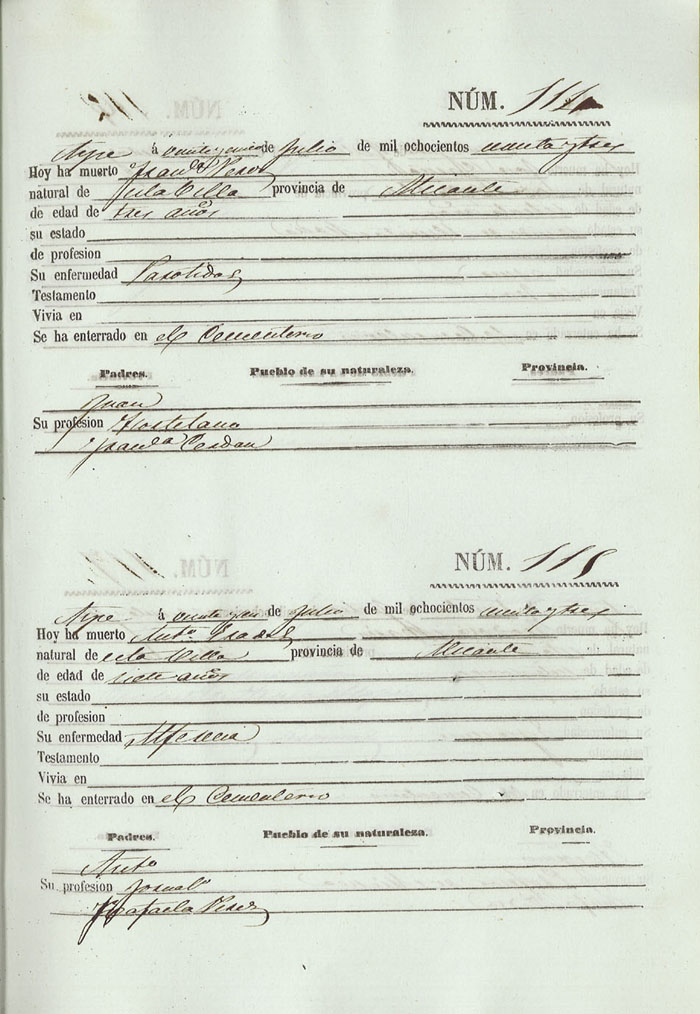 NÚM. 114
Aspe á veinte y cinco de Julio de mil ochocientos
Hoy ha muerto Fran.co Perez
natural de esta Villa provincia de Alicante
de edad de tres años
su estado
de profesion
Su enfermedad Parotidas
Testamento
Vivia en
Se ha enterrado en el Cementerio
Padres. Pueblo de su naturaleza. Provincia.
Juan
Su profesion Hortelano
Fran.ca Cerdan
NÚM. 115
Aspe á de Julio de mil ochocientos
Hoy ha muerto Ant.o
natural de esta Villa provincia de Alicante
de edad de siete años
su estado
de profesion
Su enfermedad Alferecia
Testamento
Vivia en
Se ha enterrado en el Cementerio
Padres. Pueblo de su naturaleza. Provincia.
Ant.o
Su profesion Jornal.o
Rafaela Perez